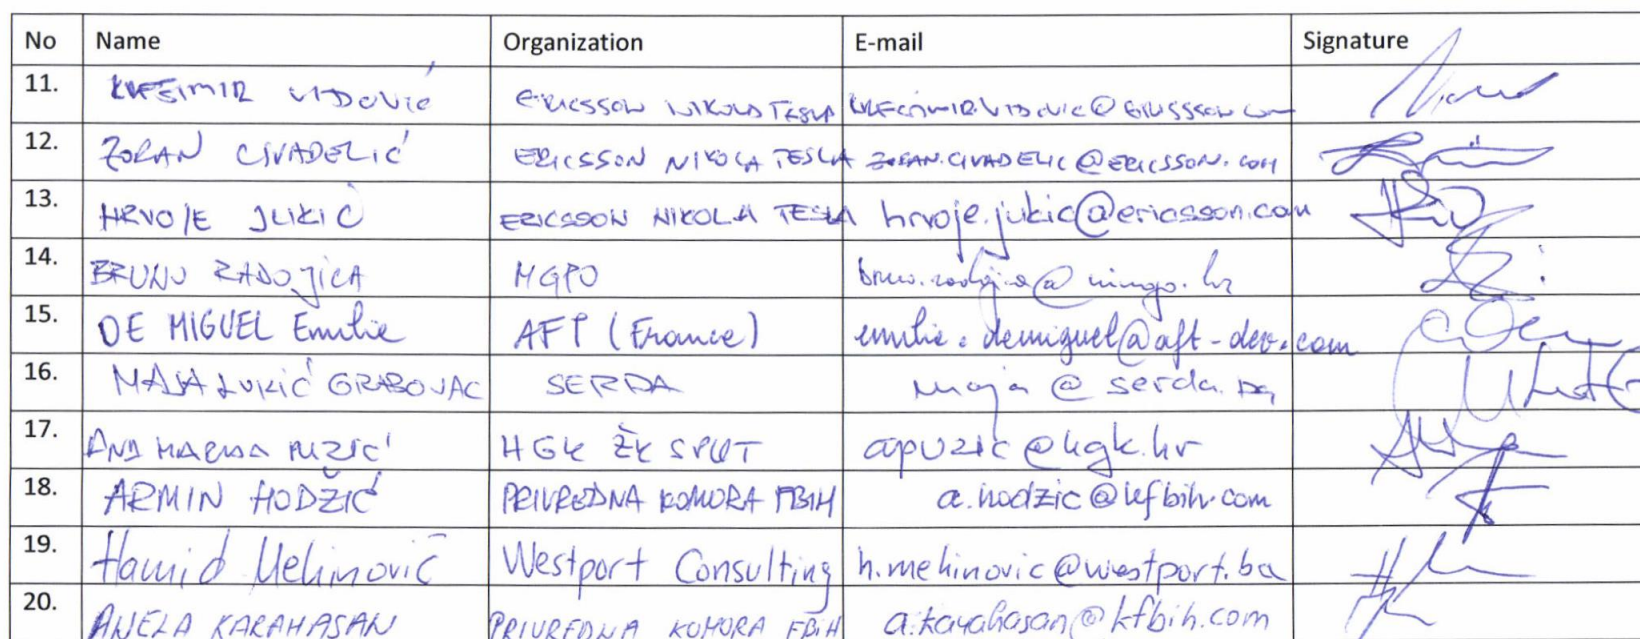 No Name Organization E-mail Signature
11. KREŠIMIR VIDOVIĆ ERICSSON NIKOLA TESLA KRESIMIR.VIDOVIC@ERICSSON.COM
12. ZORAN CIVADELIĆ ERICSSON NIKOLA TESLA ZORAN.CIVADELIC@ERICSSON.COM
13. HRVOJE JUKIĆ ERICSSON NIKOLA TESLA hrvoje.jukic@ericsson.com
14. BRUNO RADOJICA MGPO
15. DE MIGUEL Emilie AFT (France) emilie.demiguel@aft-dev.com
16. MAJA LUKIĆ GRABOVAC SERDA maja@serda.ba
17. ANA MARIJA PUZIĆ HGK ŽK SPLIT apuzic@hgk.hr
18. ARMIN HODŽIĆ PRIVREDNA KOMORA FBIH a.hodzic@kfbih.com
19. Hamid Mehinović Westport Consulting h.mehinovic@westport.ba
20. ANELA KARAHASAN PRIVREDNA KOMORA FBiH a.karahasan@kfbih.com